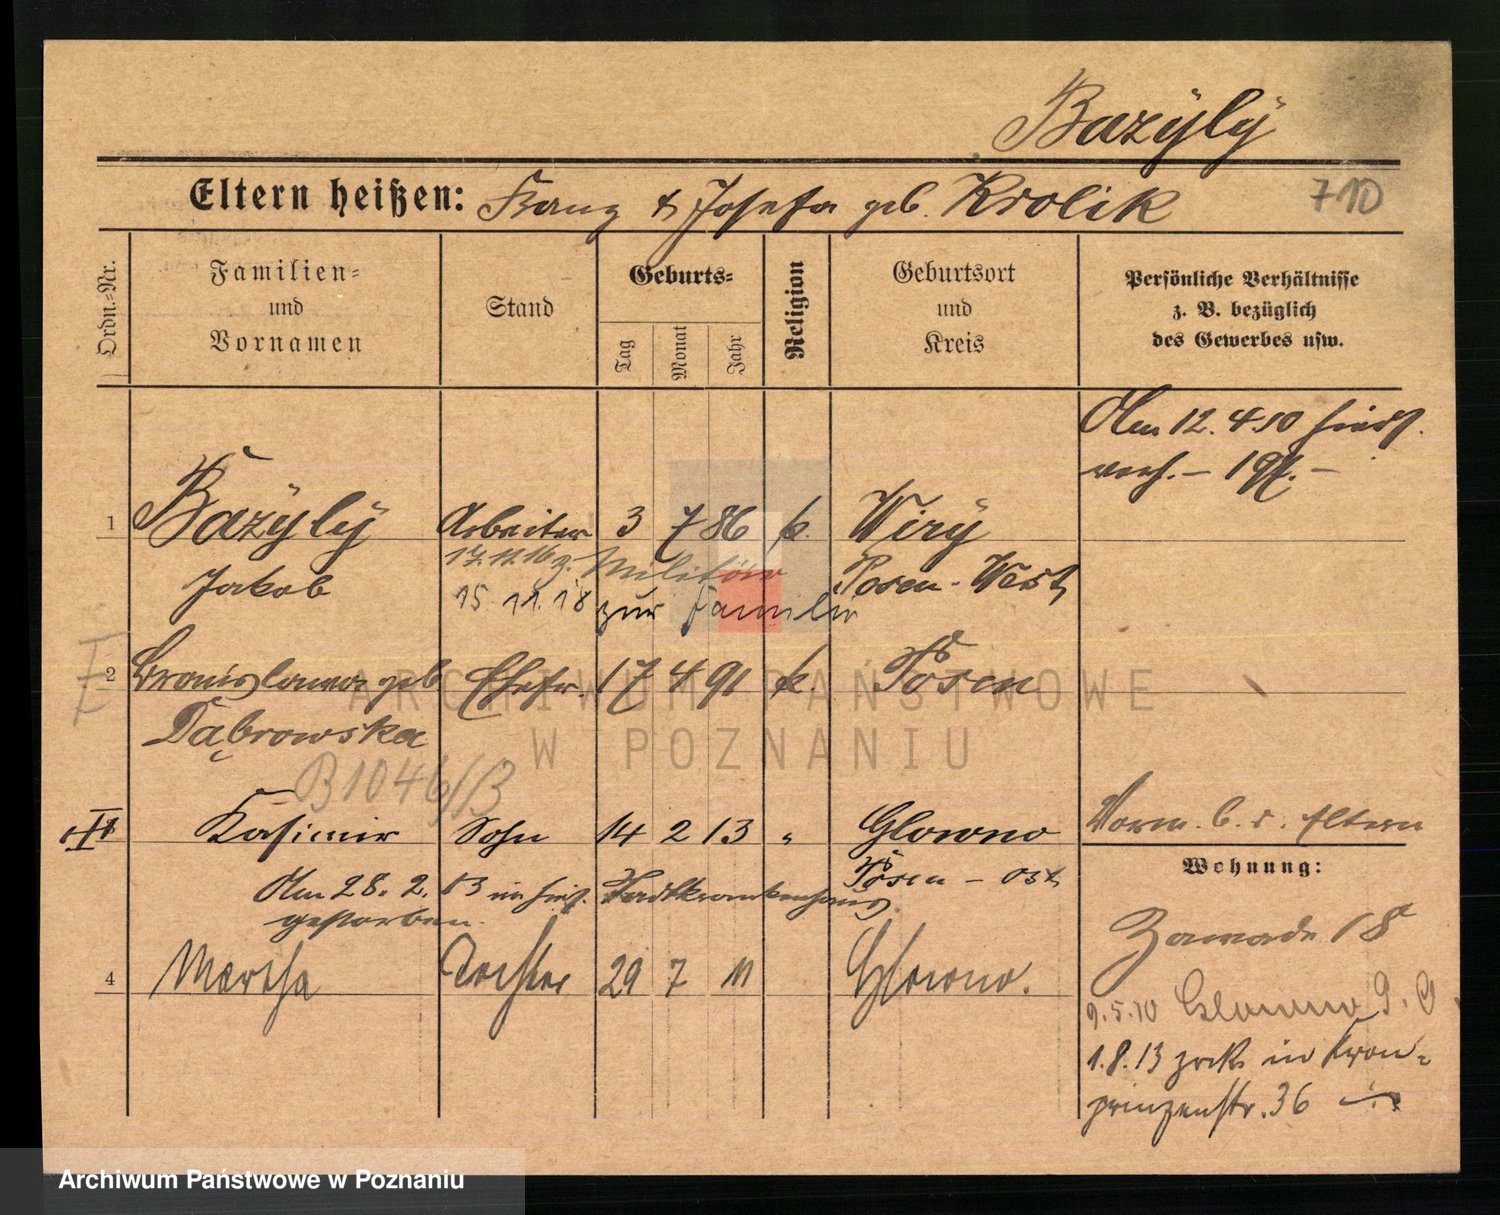 Bazÿlÿ
Eltern heißen: Franz & Josefa geb. Krolik
710
Ordn.-Nr.
Familien-
und
Vornamen
Stand
Geburts-
Tag
Monat
Jahr
Religion
Geburtsort
und
Kreis
Persönliche Verhältnisse
z. B. bezüglich
des Gewerbes usw.
Am 12.4.10
1 Bazÿlÿ Arbeiter 3 7 86 k. Wirÿ
Jakob Posen-West
17.11.16 z. Militär
15.11.18 zur Familie
E
2 Bronislawa geb Ehefr. 17 4 91 k. Posen
Dąbrowska
B1046/B
Kasimir Sohn 14 2 13 " Glowno
Posen - Ost
Am 28.2.13 im hies. Stadtkrankenhaus
gestorben.
4 Martha Tochter 29 7 11 Glowno.
Vorm. b. d. Eltern
Wohnung:
Zawade 18
9.5.10 Glowno 9.
1.8.13 zck in Kron-
prinzenstr. 36
ARCHIWUM PAŃSTWOWE
W POZNANIU
Archiwum Państwowe w Poznaniu